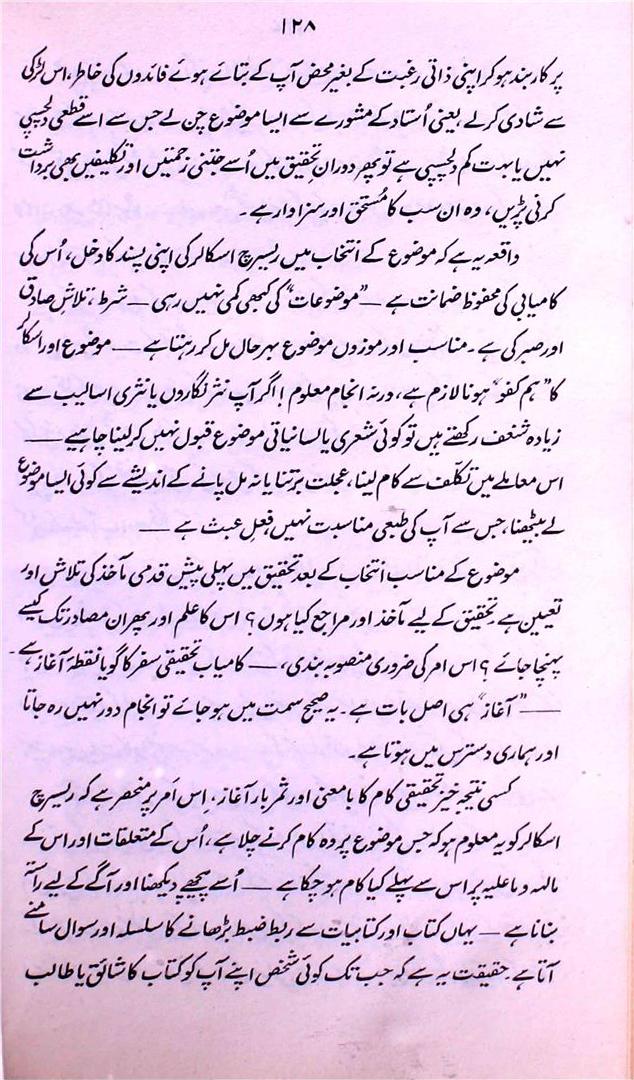 ۱۲۸
پر کاربند ہو کر اپنی ذاتی رغبت کے بغیر محض آپ کے بتائے ہوئے فائدوں کی خاطر، اس لڑکی
سے شادی کر لے، یعنی اُستاد کے مشورے سے ایسا موضوع چن لے جس سے اسے قطعی دلچسپی
نہیں یا بہت کم دلچسپی ہے تو پھر دوران تحقیق میں اُسے جتنی زحمتیں اور تکلیفیں بھی برداشت
کرنی پڑیں، وہ ان سب کا مُستحق اور سزاوار ہے۔
واقعہ یہ ہے کہ موضوع کے انتخاب میں ریسرچ اسکالر کی اپنی پسند کا دخل، اُس کی
کامیابی کی محفوظ ضمانت ہے — "موضوعات" کی کبھی کمی نہیں رہی — شرط، تلاشِ صادق
اور صبر کی ہے۔ مناسب اور موزوں موضوع بہرحال مل کر رہتا ہے — موضوع اور اسکالر
کا "ہم کفو" ہونا لازم ہے، ورنہ انجام معلوم! اگر آپ نثر نگاروں یا نثری اسالیب سے
زیادہ شغف رکھتے ہیں تو کوئی شعری یا لسانیاتی موضوع قبول نہیں کر لینا چاہیے —
اس معاملے میں تکلّف سے کام لینا، عجلت برتنا یا نہ مل پانے کے اندیشے سے کوئی ایسا موضوع
لے بیٹھنا، جس سے آپ کی طبعی مناسبت نہیں، فعلِ عبث ہے —
موضوع کے مناسب انتخاب کے بعد تحقیق میں پہلی پیش قدمی مآخذ کی تلاش اور
تعیین ہے تحقیق کے لیے مآخذ اور مراجع کیا ہوں؟ اس کا علم اور پھر ان مصادر تک کیسے
پہنچا جائے؟ اس امر کی ضروری منصوبہ بندی، — کامیاب تحقیقی سفر کا گویا نقطۂ آغاز ہے۔
— "آغاز" ہی اصل بات ہے۔ یہ صحیح سمت میں ہو جائے تو انجام دور نہیں رہ جاتا
اور ہماری دسترس میں ہوتا ہے۔
کسی نتیجہ خیز تحقیقی کام کا بامعنی اور ثمر بار آغاز، اِس اَمر پر منحصر ہے کہ ریسرچ
اسکالر کو یہ معلوم ہو کہ جس موضوع پر وہ کام کرنے چلا ہے، اُس کے متعلقات اور اس کے
مالہ و ماعلیہ پر اس سے پہلے کیا کام ہو چکا ہے — اُسے پیچھے دیکھنا اور آگے کے لیے راستہ
بنانا ہے — یہاں کتاب اور کتابیات سے ربط ضبط بڑھانے کا سلسلہ اور سوال سامنے
آتا ہے۔ حقیقت یہ ہے کہ جب تک کوئی شخص اپنے آپ کو کتاب کا شائق یا طالب